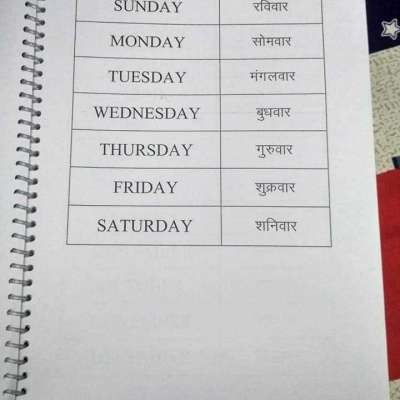 SUNDAY रविवार
MONDAY सोमवार
TUESDAY मंगलवार
WEDNESDAY बुधवार
THURSDAY गुरुवार
FRIDAY शुक्रवार
SATURDAY शनिवार